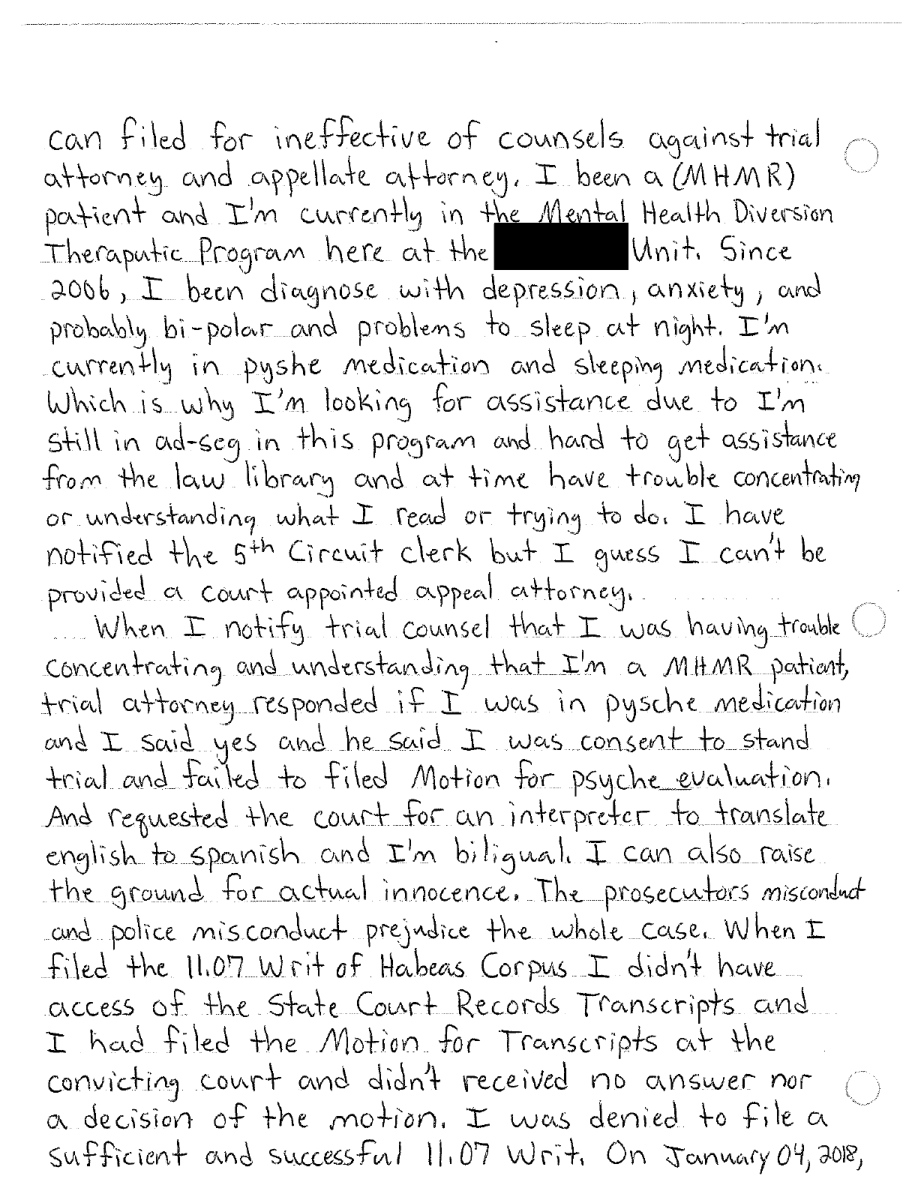 can filed for ineffective of counsels against trial
attorney and appellate attorney. I been a (MHMR)
patient and I'm currently in the Mental Health Diversion
Theraputic Program here at the Unit. Since
2006, I been diagnose with depression, anxiety, and
probably bi-polar and problems to sleep at night. I'm
currently in pyshe medication and sleeping medication.
Which is why I'm looking for assistance due to I'm
still in ad-seg in this program and hard to get assistance
from the law library and at time have trouble concentrating
or understanding what I read or trying to do. I have
notified the 5th Circuit clerk but I guess I can't be
provided a court appointed appeal attorney.
When I notify trial counsel that I was having trouble
concentrating and understanding that I'm a MHMR patient,
trial attorney responded if I was in pysche medication
and I said yes and he said I was consent to stand
trial and failed to filed Motion for psyche evaluation.
And requested the court for an interpreter to translate
english to spanish and I'm biligual. I can also raise
the ground for actual innocence. The prosecutors misconduct
and police misconduct prejudice the whole case. When I
filed the 11.07 Writ of Habeas Corpus I didn't have
access of the State Court Records Transcripts and
I had filed the Motion for Transcripts at the
convicting court and didn't received no answer nor
a decision of the motion. I was denied to file a
sufficient and successful 11.07 Writ. On January 04, 2018,